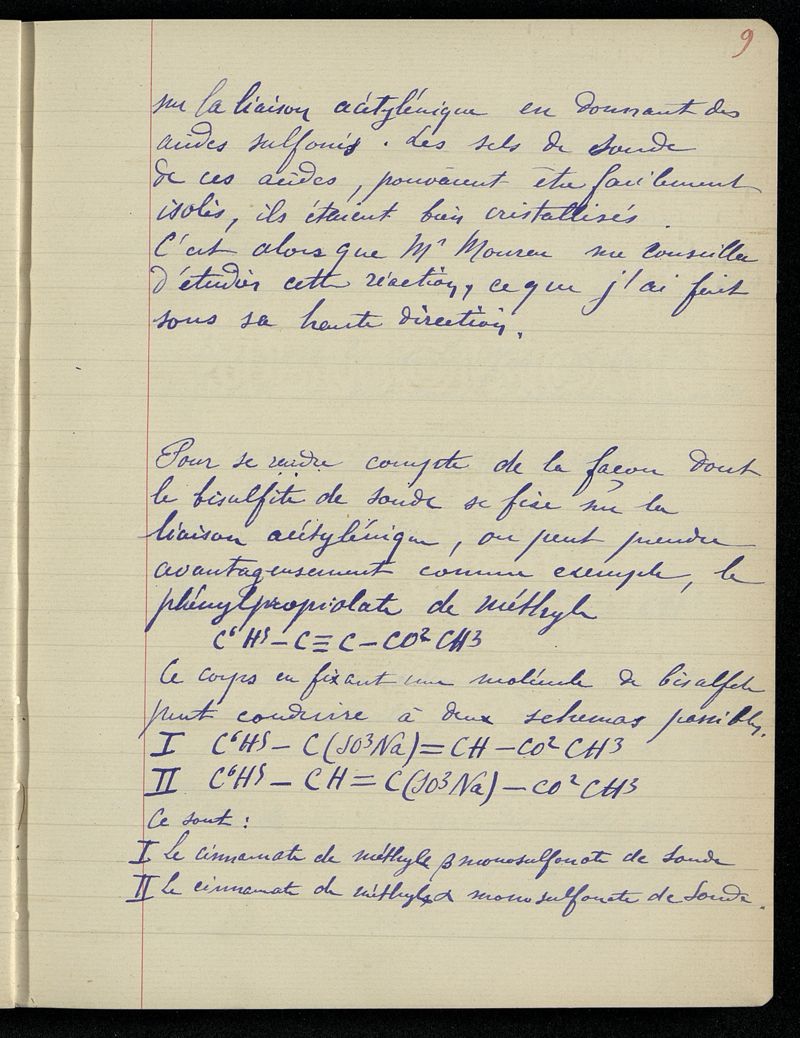 9
sur la liaison acétylénique en donnant des
acides sulfonés. Les sels de soude
de ces acides, pouvaient être facilement
isolés, ils étaient bien cristallisés.
C'est alors que Mr Moureu me conseilla
d'étudier cette réaction, ce que j'ai fait
sous sa haute direction.
Pour se rendre compte de la façon dont
le bisulfite de soude se fixe sur la
liaison acétylénique, on peut prendre
avantageusement comme exemple, le
phénylpropiolate de méthyle
C⁶H⁵ – C ≡ C – CO² CH³
Ce corps en fixant une molécule de bisulfite
peut conduire à deux schemas possibles.
I C⁶H⁵ – C(SO³Na) = CH – CO² CH³
II C⁶H⁵ – CH = C(SO³Na) – CO² CH³
Ce sont :
I Le cinnamate de méthyle β monosulfonate de soude
II Le cinnamate de méthyle α monosulfonate de soude.